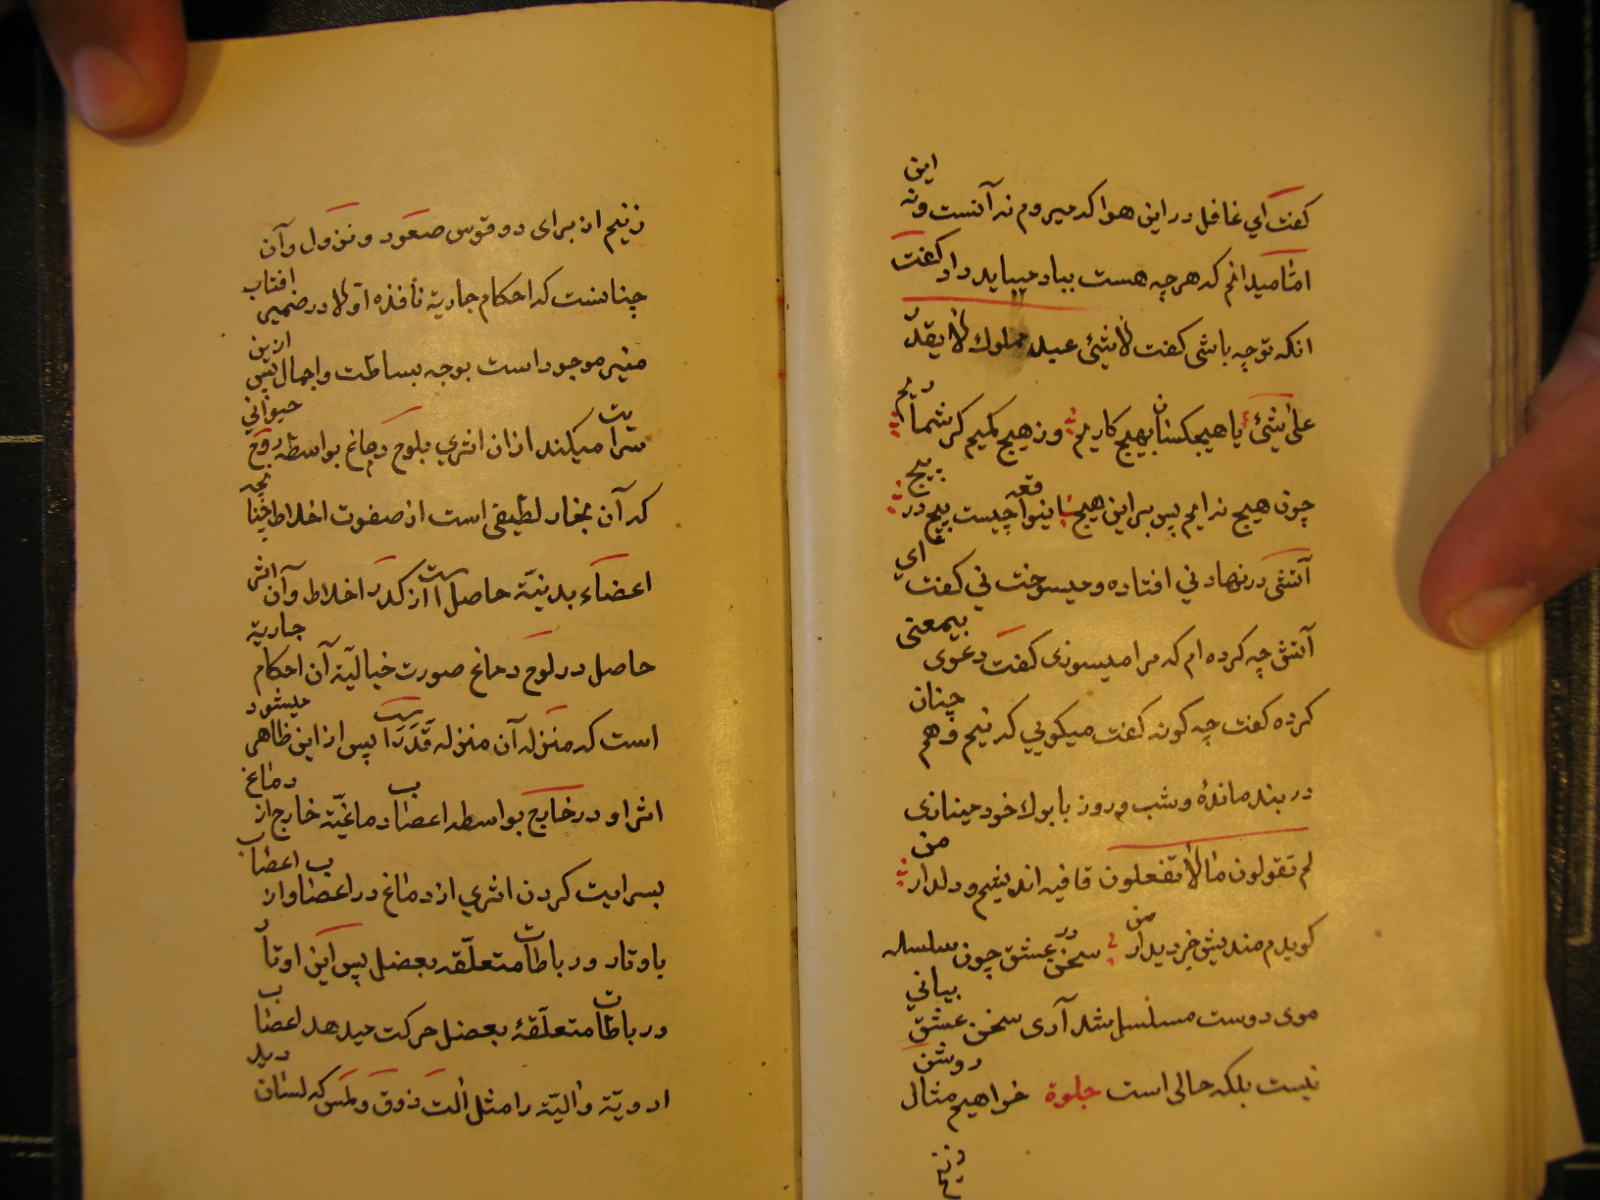 گفت ای غافل در این هوا که میروم نه آنست ونه این
امّا میدانم که هرچه هست بباد میباید داد گفت
انکه توچه باشی گفت لاشیئ عبد مملوك لا یقدر
علی شیئ یا هیچکسان بهیچ کاریم وز هیچ کمیم گر شماریم
چون هیچ نه ایم پس بر این هیچ اینواقعه چیست پیچ در پیچ
آتشی در نهاد نی افتاده ومیسوخت نی گفت ای
آتش چه کرده ام که مرا میسوزی گفت دعوی بیمعنی
کرده گفت چه گونه گفت میگویی که نیم وهم چنان
در بند مانده وشب وروز با بوك خود مینازی
لم تقولون ما لا تفعلون قافیه اندیشم ودلدار من
گویدم مندیش جز دیدار من سخن در عشق چون سلسله
موی دوست مسلسل شد آری سخن عشق بیانی
نیست بلکه حالی است جلوة خواهیم مثال روشن
زنیم
زنیم از برای دو قوس صعود ونزول وآن
چنانست که احکام جاریة نافذه اوّلا در ضمیر افتاب
منیر موجود است بوجه بساطت واجمال پس ازین
سرایت میکند ازان اثری بلوح دماغ بواسطه روح حیوانی
که آن بخار لطیفی است از صفوت اخلاط چنانچه
اعضاء بدنیّة حاصل است از کدر اخلاط وآن اثر
حاصل در لوح دماغ صورت خیالیّة آن احکام جاریة
است که منزله آن منزله قَدَر است پس ازاین ظاهر میشود
اثر او در خارج بواسطه اعصاب دماغیّة خارج از دماغ
بسرایت کردن اثری از دماغ در اعصاب واز اعصاب
باوتار ورباطات متعلّقه بعضل پس این اوتار
ورباطات متعلّقهٔ بعضل حرکت میدهد اعصاب
ادویّة والیّة را مثل الت ذوق ولمس که لسان ویدند